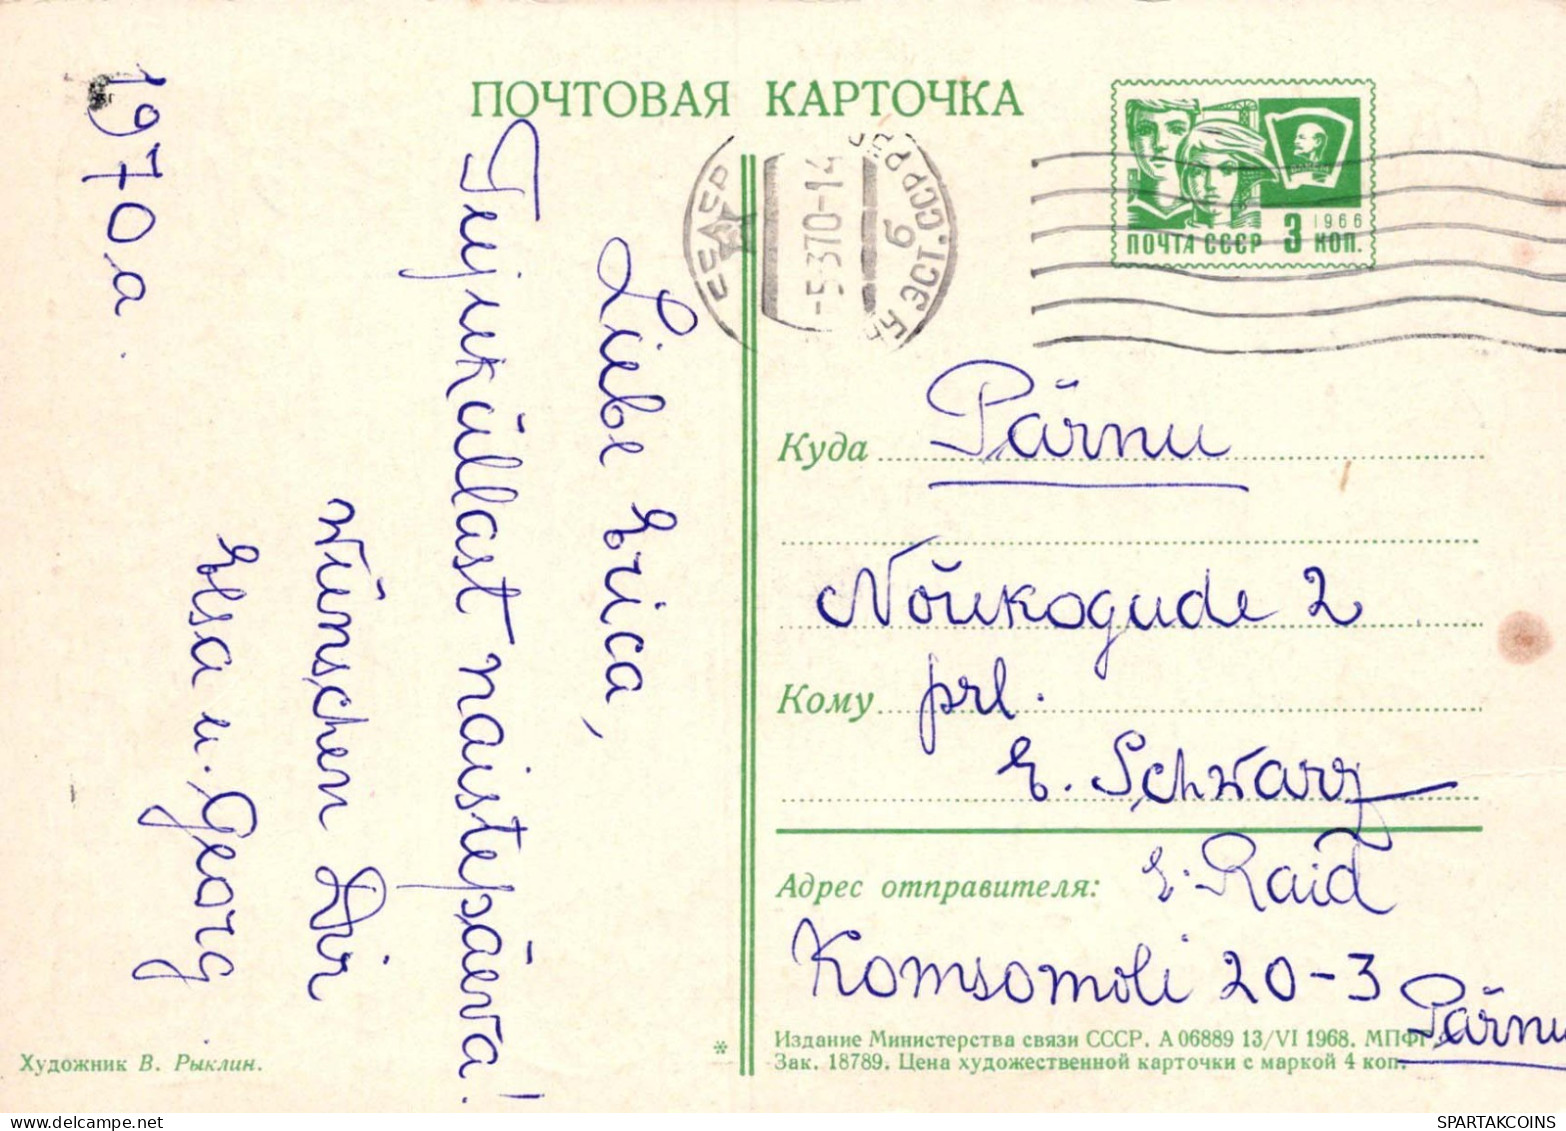 ПОЧТОВАЯ КАРТОЧКА
1970 a.
Liebe Erica,
Teijeküllast naistepäeva!
wünschen Dir
Elsa u. Georg.
СССР
-5 3 70-14
б
ЭСТ. ССР
ПОЧТА СССР 3 КОП.
1966
Куда Pärnu
Nõukogude 2
Кому prl.
E. Schwarz
Адрес отправителя: E. Raid
Komsomoli 20-3
Pärnu
Издание Министерства связи СССР. А 06889 13/VI 1968. МПФГ
Зак. 18789. Цена художественной карточки с маркой 4 коп.
*
Художник В. Рыклин.
www.delcampe.net
SPARTAKCOINS